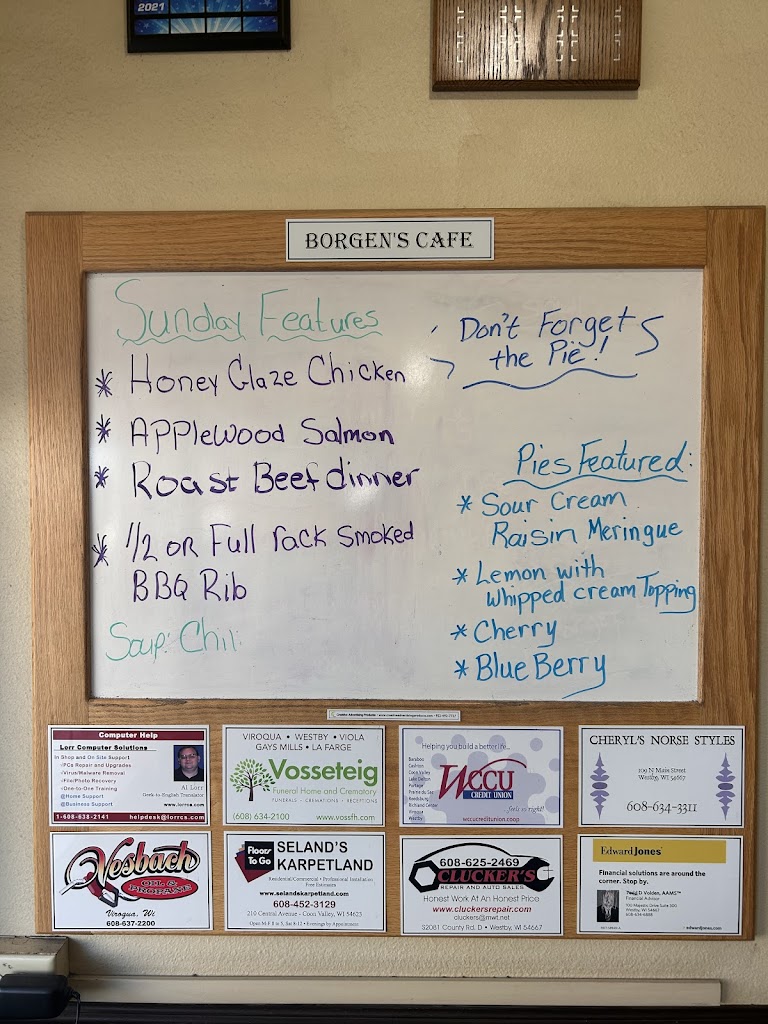 2021
BORGEN'S CAFE
Sunday Features
* Honey Glaze Chicken
* Applewood Salmon
* Roast Beef dinner
* 1/2 or Full rack smoked
BBQ Rib
Soup: Chili
Don't Forget
the Pie!
Pies Featured:
* Sour Cream
Raisin Meringue
* Lemon with
whipped cream Topping
* Cherry
* Blue Berry
Computer Help
Lorr Computer Solutions
In Shop and On Site Support
PCs Repair and Upgrades
Virus/Malware Removal
File/Photo Recovery
One-to-One Training
@Home Support
@Business Support
Al Lorr
Geek-to-English Translator
www.lorrca.com
1-608-638-2141 helpdesk@lorrcs.com
VIROQUA • WESTBY • VIOLA
GAYS MILLS • LA FARGE
Vosseteig
Funeral Home and Crematory
FUNERALS - CREMATIONS - RECEPTIONS
(608) 634-2100 www.vossfh.com
Helping you build a better life...
Baraboo
Cashton
Coon Valley
Portage
Prairie du Sac
Reedsburg
Richland Center
Viroqua
Westby
WCCU
CREDIT UNION
feels so right!
wccucreditunion.coop
CHERYL'S NORSE STYLES
109 N Main Street
Westby, WI 54667
608-634-3311
Vesbach
OIL & PROPANE
Viroqua, Wi
608-637-2200
Floors To Go
SELAND'S
KARPETLAND
Residential/Commercial • Professional Installation
Free Estimates
www.selandskarpetland.com
608-452-3129
210 Central Avenue - Coon Valley, WI 54623
608-625-2469
CLUCKER'S
REPAIR AND AUTO SALES
Honest Work At An Honest Price
www.cluckersrepair.com
cluckers@mwt.net
32061 County Rd. D • Westby, WI 54667
Edward Jones
Financial solutions are around the
corner. Stop by.
D Volden, AAMS™
Financial Advisor
Westby, WI 54667
edwardjones.com